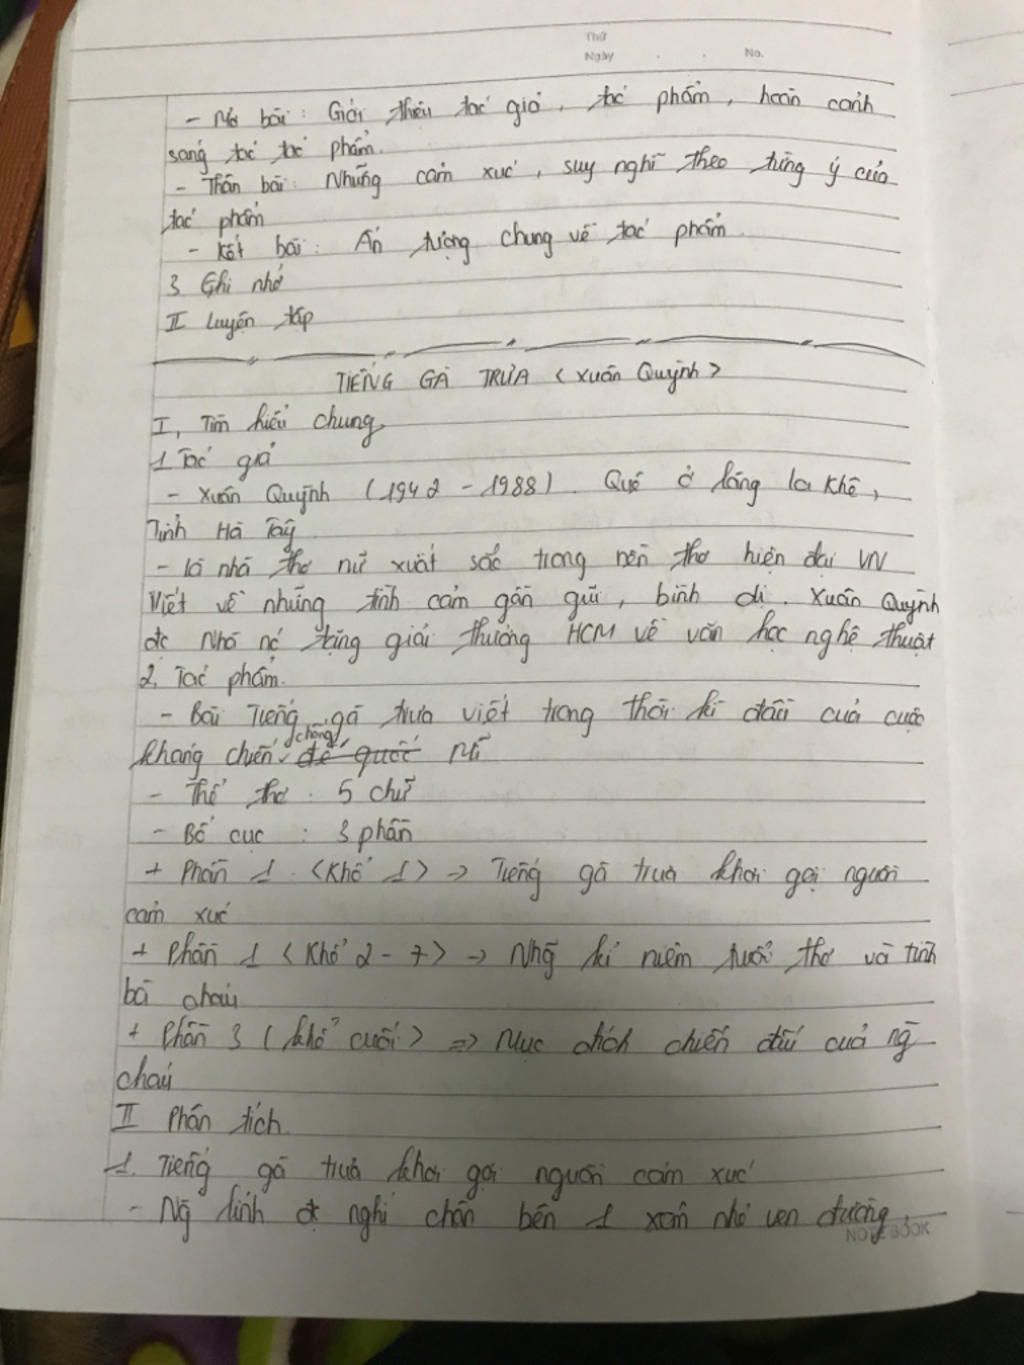 Thứ
Ngày . . No.
- Mở bài : Giới thiệu tác giả, tác phẩm, hoàn cảnh
sáng tác tác phẩm.
- Thân bài : Những cảm xúc, suy nghĩ theo từng ý của
tác phẩm
- Kết bài : Ấn tượng chung về tác phẩm.
3 Ghi nhớ
II Luyện tập
TIẾNG GÀ TRƯA <Xuân Quỳnh>
I, Tìm hiểu chung
1 Tác giả
- Xuân Quỳnh (1942 - 1988). Quê ở làng La Khê,
Tỉnh Hà Tây.
- Là nhà thơ nữ xuất sắc trong nền thơ hiện đại VN
Viết về những tình cảm gần gũi, bình dị. Xuân Quỳnh
đc Nhà nc tặng giải thưởng HCM về văn học nghệ thuật
2, Tác phẩm.
- Bài Tiếng gà trưa viết trong thời kì đầu của cuộc
kháng chiến chống đế quốc Mĩ
- Thể thơ : 5 chữ
- Bố cục : 3 phần
+ Phần 1 . <Khổ 1> -> Tiếng gà trưa khơi gợi người
cảm xúc
+ Phần 1 <Khổ 2 - 7> -> Nhg kỉ niệm tuổi thơ và tình
bà cháu
+ Phần 3 (khổ cuối> => Mục đích chiến đấu của ng
cháu
II Phân tích
1. Tiếng gà trưa khơi gợi nguồn cảm xúc
- Ng lính nghỉ chân bên 1 xóm nhỏ ven đường.
NOTEBOOK